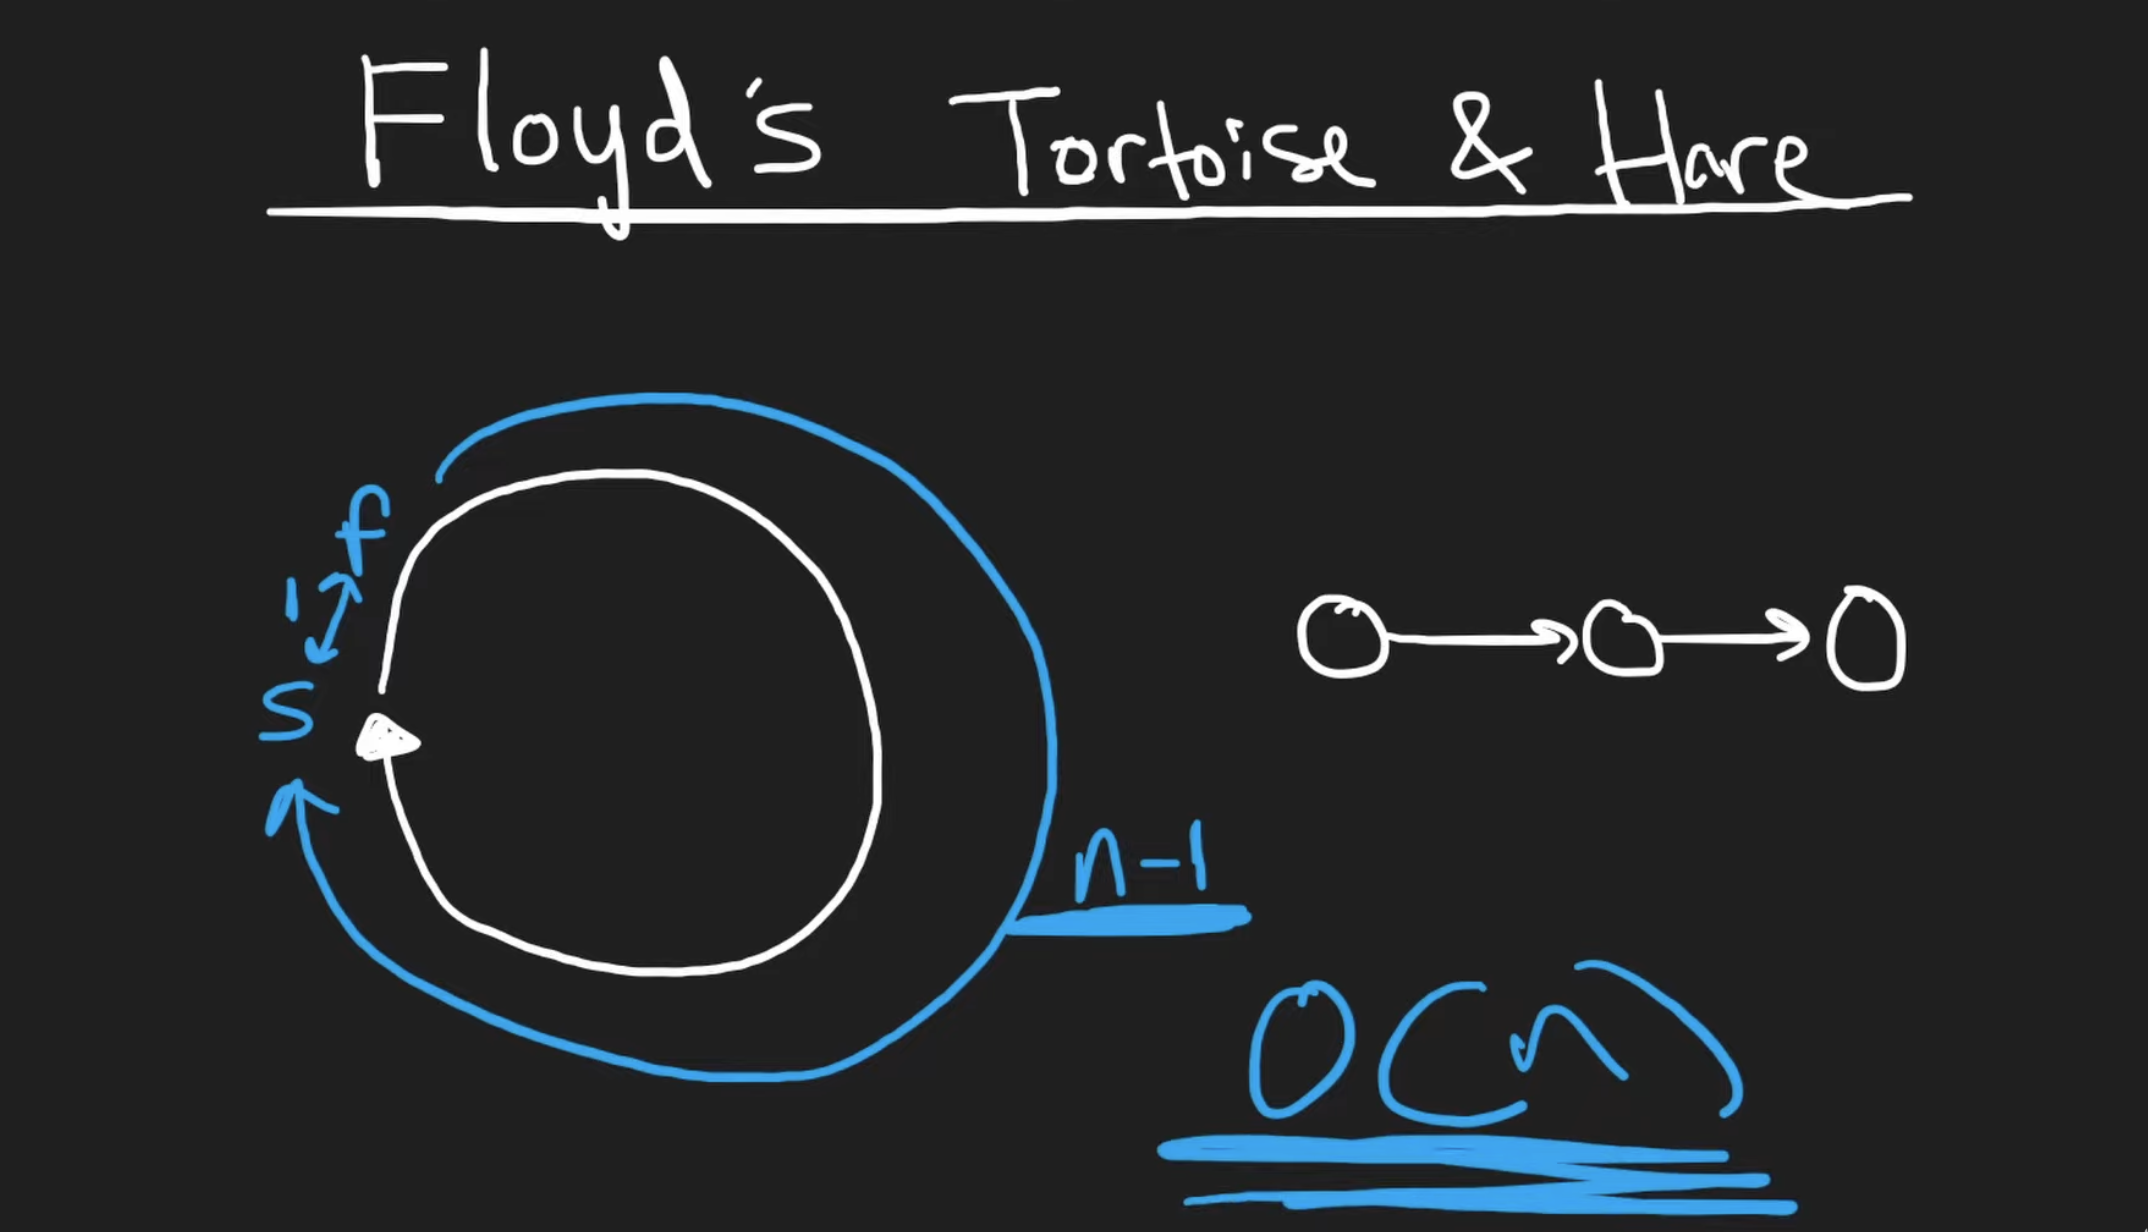 Floyd's Tortoise & Hare
f
1
s
n-1
O(n)